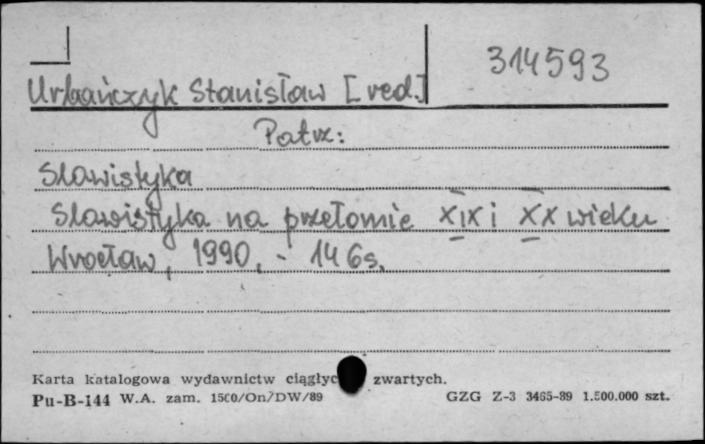 314593
Urbańczyk Stanisław [red.]
Patrz:
Slawistyka
Slawistyka na przełomie XIX i XX wieku
Wrocław, 1990. - 146s.
Karta katalogowa wydawnictw ciągłyc zwartych.
Pu-B-144 W.A. zam. 1500/On/DW/89 GZG Z-3 3465-89 1.500.000 szt.